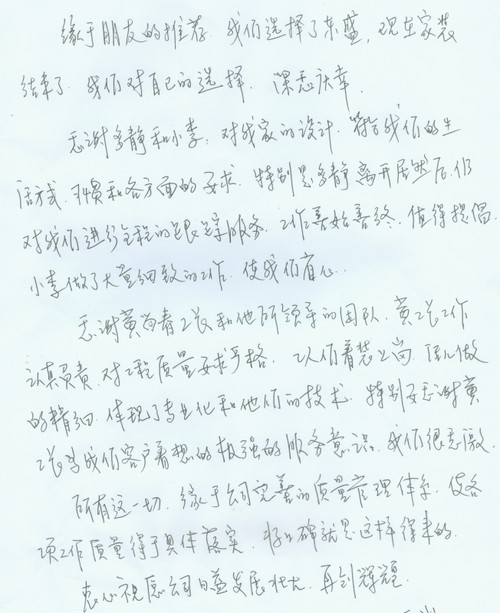 缘于朋友的推荐，我们选择了东盛，现在家装
结束了，我们对自己的选择，深感庆幸。
感谢多静和小李，对我家的设计，符合我们的生
活方式，习惯和各方面的要求，特别是多静离开居然后，仍
对我们进行全程的跟踪服务，工作善始善终，值得提倡。
小李做了大量细致的工作，使我们省心。
感谢黄尚春工长和他所领导的团队，黄工长工作
认真负责，对工程质量要求严格，工人们着装上岗，活儿做
的精细，体现了专业化和他们的技术，特别要感谢黄
工长为我们客户着想的极强的服务意识，我们很感激。
所有这一切，缘于公司完善的质量管理体系，使各
项工作质量得于具体落实，好口碑就是这样得来的。
衷心祝愿公司日益发展壮大，再创辉煌。